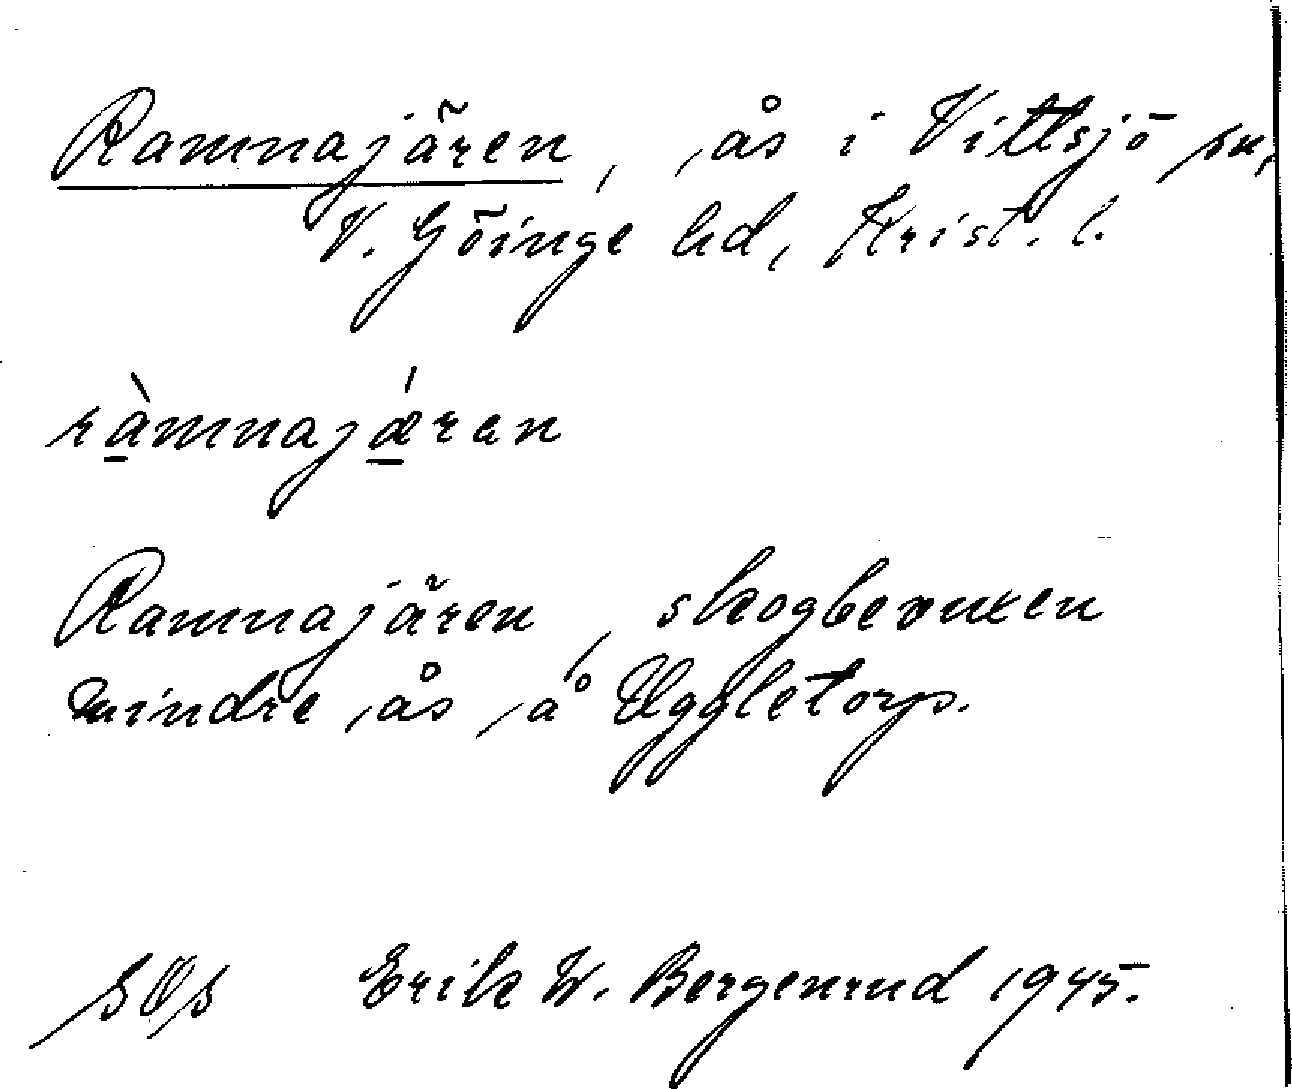 Ramnajären, ås i Vittsjö sn,
V. Göinge hd, Krist. l.
ràmnajǽren
Ramnajären, skogbevuxen
mindre ås å Uggletorp.
Erik W. Bergenrud 1945.